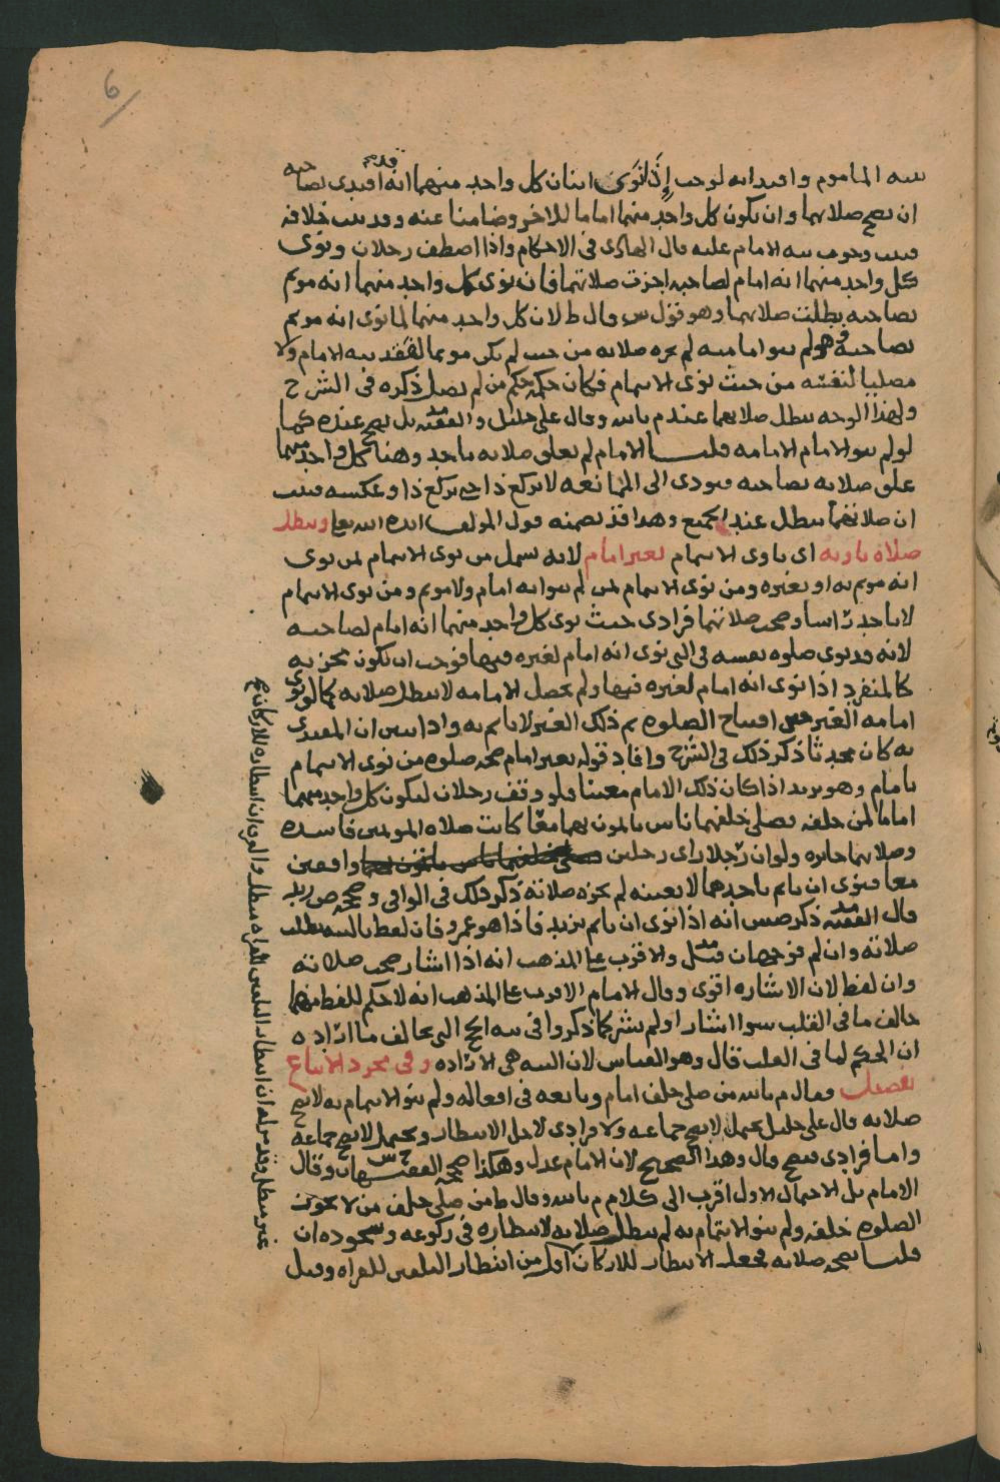 نيه الماموم واقتدايه لوجب إذا نوى اثنان كل واحد منهما انه اقتدى بصاحبه
ان يصح صلاتهما وان يكون كل واحد منهما اماما للاخر وضامنا عنه وقد ثبت خلافه
فثبت وجوب نيه الامام عليه قال الهادى فى الاحكام واذا اصطف رجلان ونوى
كل واحد منهما انه امام لصاحبه اجزت صلاتهما فان نوى كل واحد منهما انه موتم
بصاحبه بطلت صلاتهما وهو قول ش وقال ط لان كل واحد منهما لما نوى انه موتم
بصاحبه ولم ينو امامته لم تجزه صلاته من حيث لم يكن موتما لفقد نيه الامام ولا
مصليا لنفسه من حيث نوى الايتمام فكان حكمه حكم من لم يصل ذكره فى الشرح
ولهذا الوجه تبطل صلاتهما عند م بالله وقال على خليل والفقيه بل يصح عنده كما
لو لم ينو الامام الامامه قلنا الامام لم يعلق صلاته باحد وهنا كل واحد منهما
علق صلاته بصاحبه فيودى الى الممانعه لا يركع ذا حتى يركع ذا وعكسه فثبت
ان صلاتهما تبطل عند الجميع وهذا قد تضمنه قول المولف ايده الله تعالى وتبطل
صلاة ناويه اى ناوى الايتمام بغير امام لانه يشمل من نوى الايتمام لمن نوى
انه موتم به او بغيره ومن نوى الايتمام لمن لم ينو انه امام ولا موتم ومن نوى الايتمام
لا باحد راسا وصحت صلاتهما فرادى حيث نوى كل واحد منهما انه امام لصاحبه
لانه قد نوى صلوه نفسه فى التى نوى انه امام لغيره فيها فوجب ان تكون مجزيه
كالمنفرد اذا نوى انه امام لغيره فيها ولم تحصل الامامه لا تبطل صلاته كما لو نوى
امامه الغير حين افتتاح الصلوه ثم ذلك الغير لا ياتم به واذا تبين ان المقتدى
به كان محدثا ذكر ذلك فى الشرح وافاد قوله بغير امام صحه صلوه من نوى الايتمام
بامام وهو يريد اذا كان ذلك الامام معينا فلو وقف رجلان ليكون كل واحد منهما
اماما لمن خلفه فصلى خلفهما ناس ياتمون بهما معا كانت صلاه المومين فاسده
وصلاتهما جايزه ولو ان رجلا راى رجلين واقفين
معا فنوى ان ياتم باحدهما لا بعينه لم تجزه صلاته ذكر ذلك فى الوافى
قال الفقيه ذكر ص انه اذا نوى ان ياتم بزيد فاذا هو عمرو فان لفظ بالنيه بطلت
صلاته وان لم فوجهان قيل والاقرب على المذهب انه اذا اشار صحت صلاته
وان لفظ لان الاشاره اقوى وقال الامام الاقرب على المذهب انه لا حكم للفظ مهما
خالف ما فى القلب سوا اشار او لم يشر كما ذكروا فى نيه الحج التى تخالف ما اراده
ان الحكم لما فى القلب قال وهو القياس لان النيه هى الاراده وفى مجرد الاتباع
تفصيل وقال م بالله من صلى خلف امام وتابعه فى افعاله ولم ينو الايتمام به لا تصح
صلاته قال على خليل يحتمل لا تصح جماعه ولا فرادى لاجل الانتظار ويحتمل لا تصح جماعه
واما فرادى فتصح قال وهذا الصحيح لان الامام عدل وهكذا صحح الفقيهان وقال
الامام بل الاحتمال الاول اقرب الى كلام م بالله وقال ط من صلى خلف من لا تجوز
الصلوه خلفه ولم ينو الايتمام به لم تبطل صلاته لانتظاره فى ركوعه وسجوده ان
قلنا بصحه صلاته فجعل الانتظار للاركان اقل من انتظار المتلقن للقراه وقيل